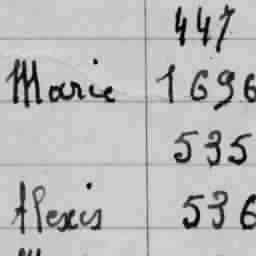 447
Marie 1696
535
Alexis 536